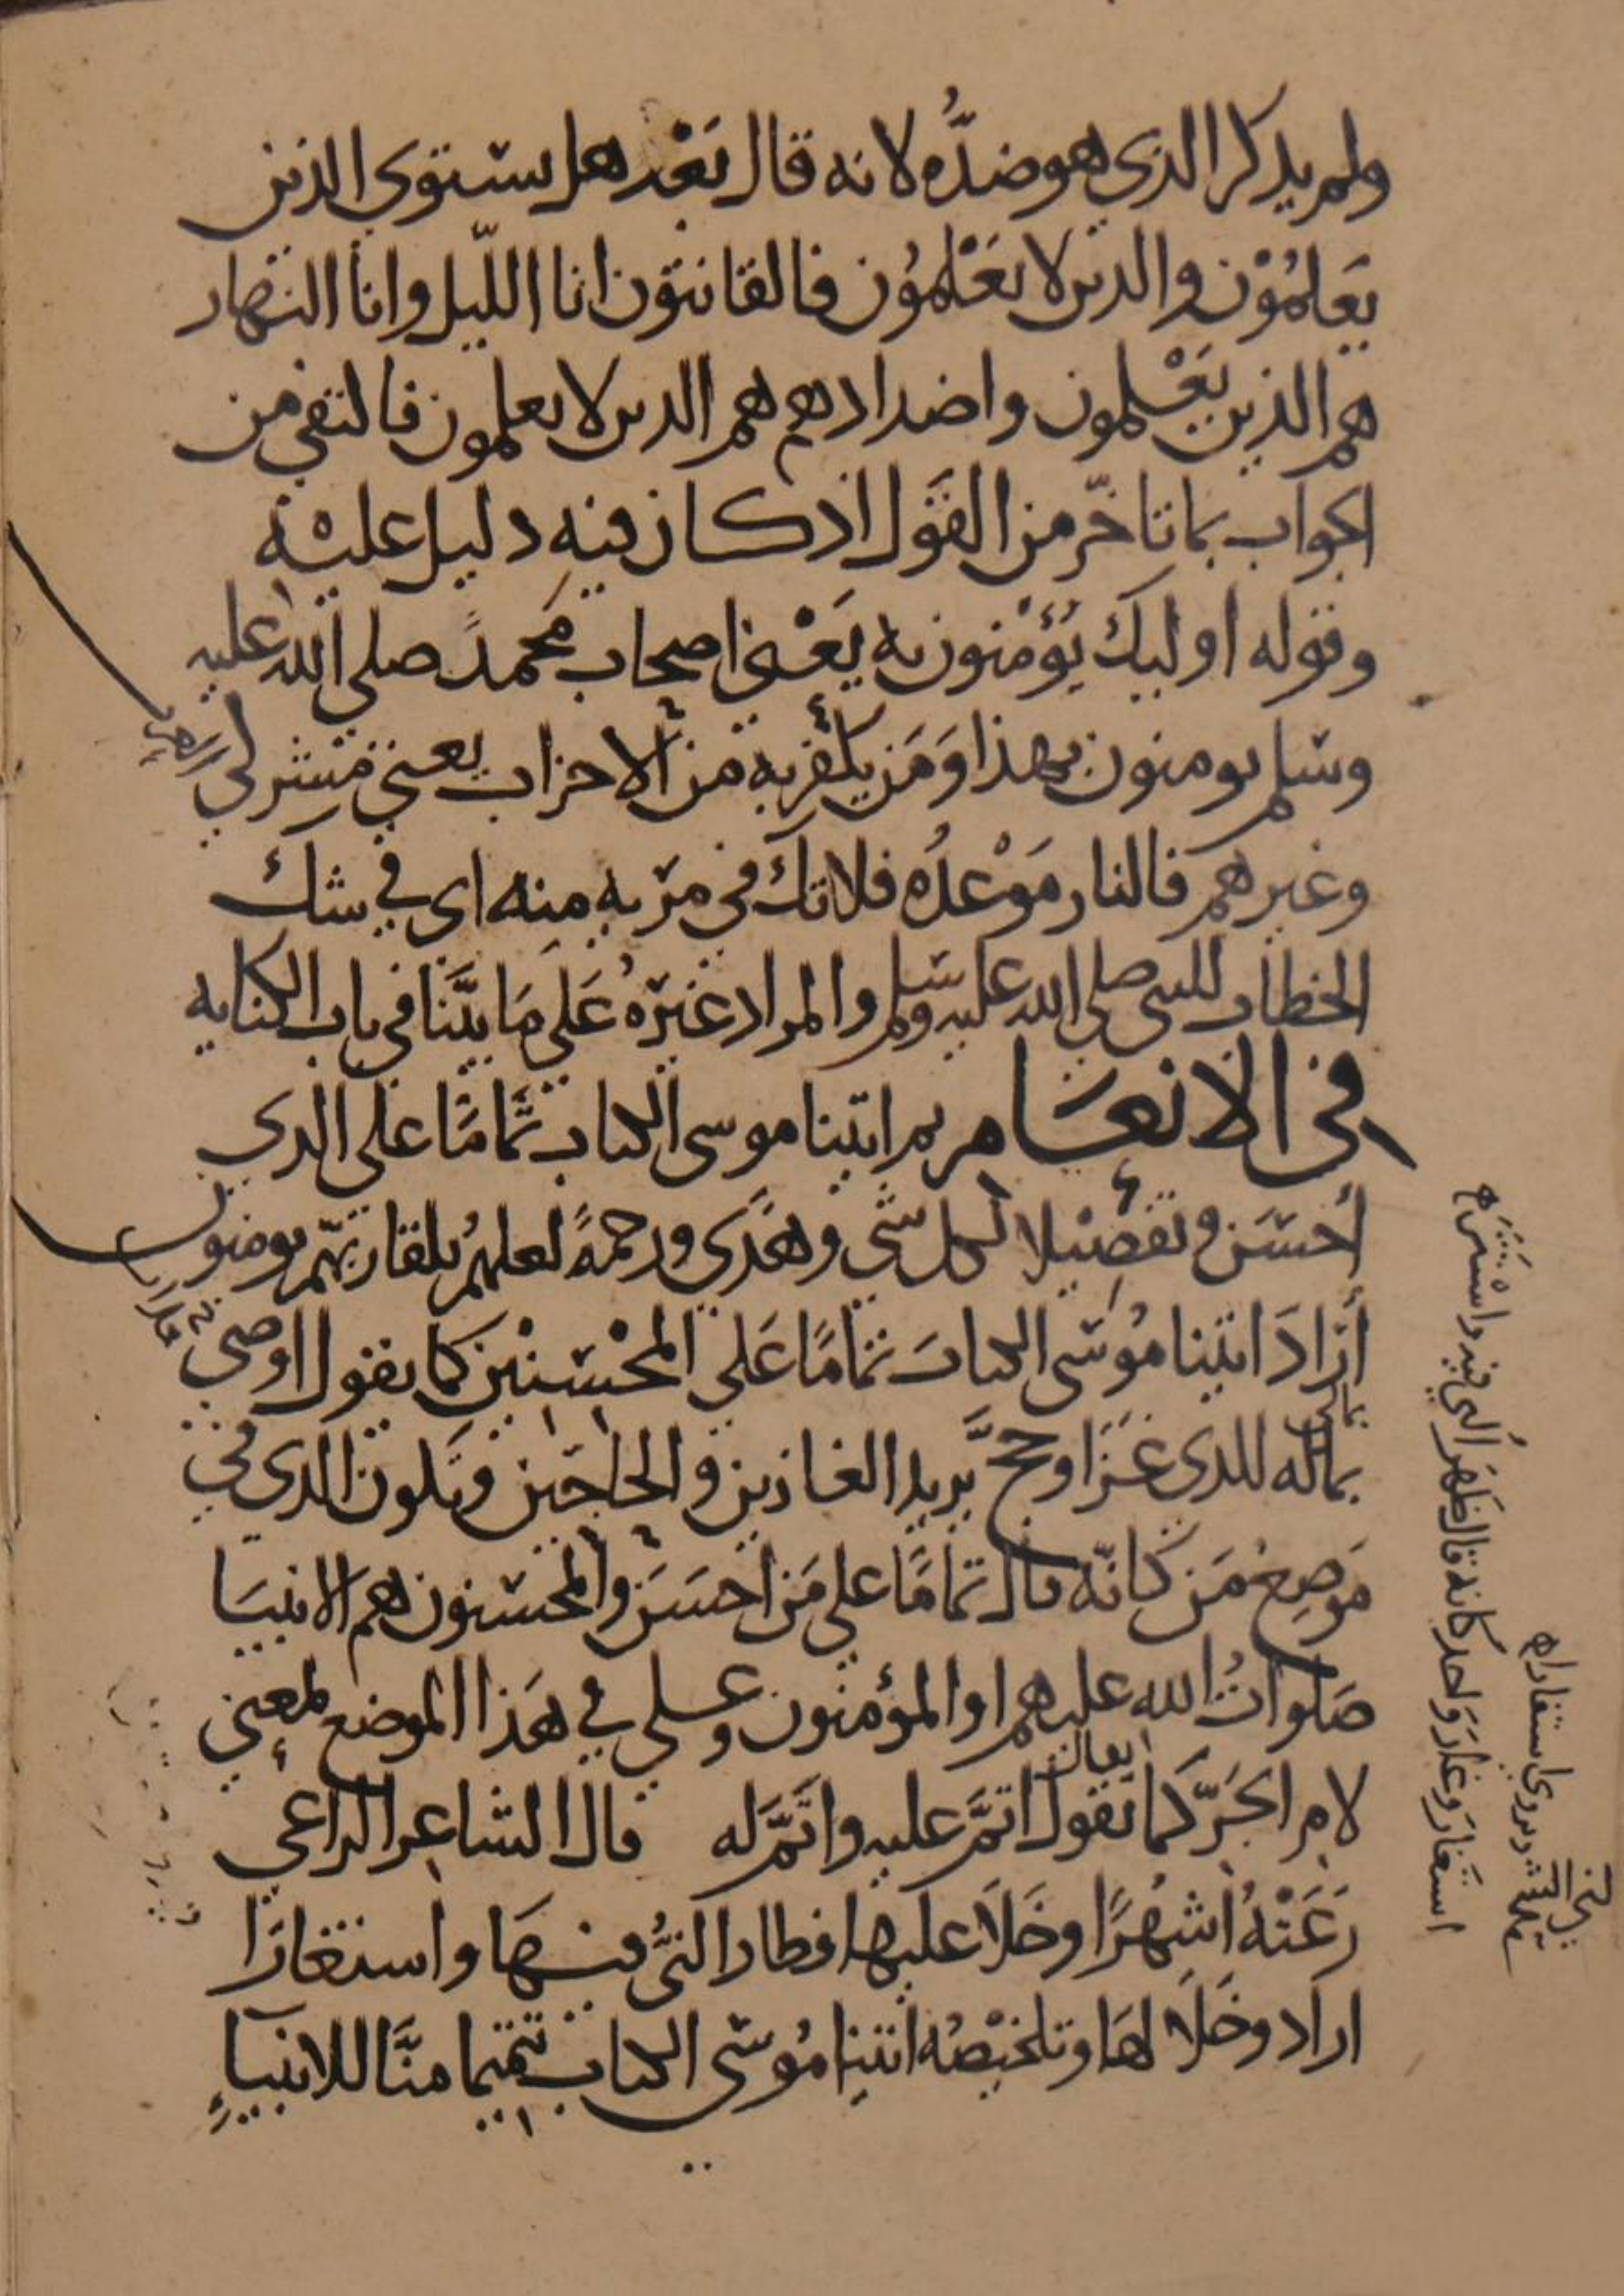 ولم يذكر الذي هو ضدُّه لانه قال بَعْد هل يستوي الذين
يَعلمُوْن والذين لا يَعْلمُون فالقانتون انا الليل وانا النهار
هم الذين يَعْلمون واضدادهم هم الذين لا يعلمون فاكتفي من
الجواب بما تاخّر من القَول اذ كان فيه دليل عليْه
وقوله اوليك يُؤمنون به يَعْني اصحاب مُحمد صلى الله عليه
وسلم يومنون بهذا وَمَن يكفر به من الاحزاب يعني مشركي
وغيرهم فالنار مَوْعدُه فلا تك في مرية منه اي في شك
الخطاب للنبي صلى الله عليه وسلم والمراد غيرُهُ عَلي مَا بيَّنا في باب الكناية
في الانعام ثم اتينا موسى الكتاب تَمامًا على الذي
أحسَن وتفصِيْلا لكل شي وهُدًي ورحمةً لعلهمُ بلقا ربّهم يومنون
أرَادَ اتينا مُوسَى الكتابَ تمامًا عَلي المحْسنيْن كما يقول اوصي
بماله للذي غَزَا وحجَّ يريد الغازين والحاجّين ويَكون الذي في
مَوضِع مَن كانّه قال تمامًا علي مَن احسَن والمحسنون هم الانبيَا
صَلواتُ الله عليهم او المؤمنون وعلي في هَذا الموضع بمعني
لام الجَرّ كما يقول اتمَّ عليه واتمَّ له قال الشاعر الراعي
رَعَتْهُ أشهُرًا وخَلَا عليها فطار النيُّ فيهَا واستغارَا
اراد وخَلَا لهَا وتلخيْصُه اتينا مُوسَى الكتاب تتميما منَّا للانبياءِ